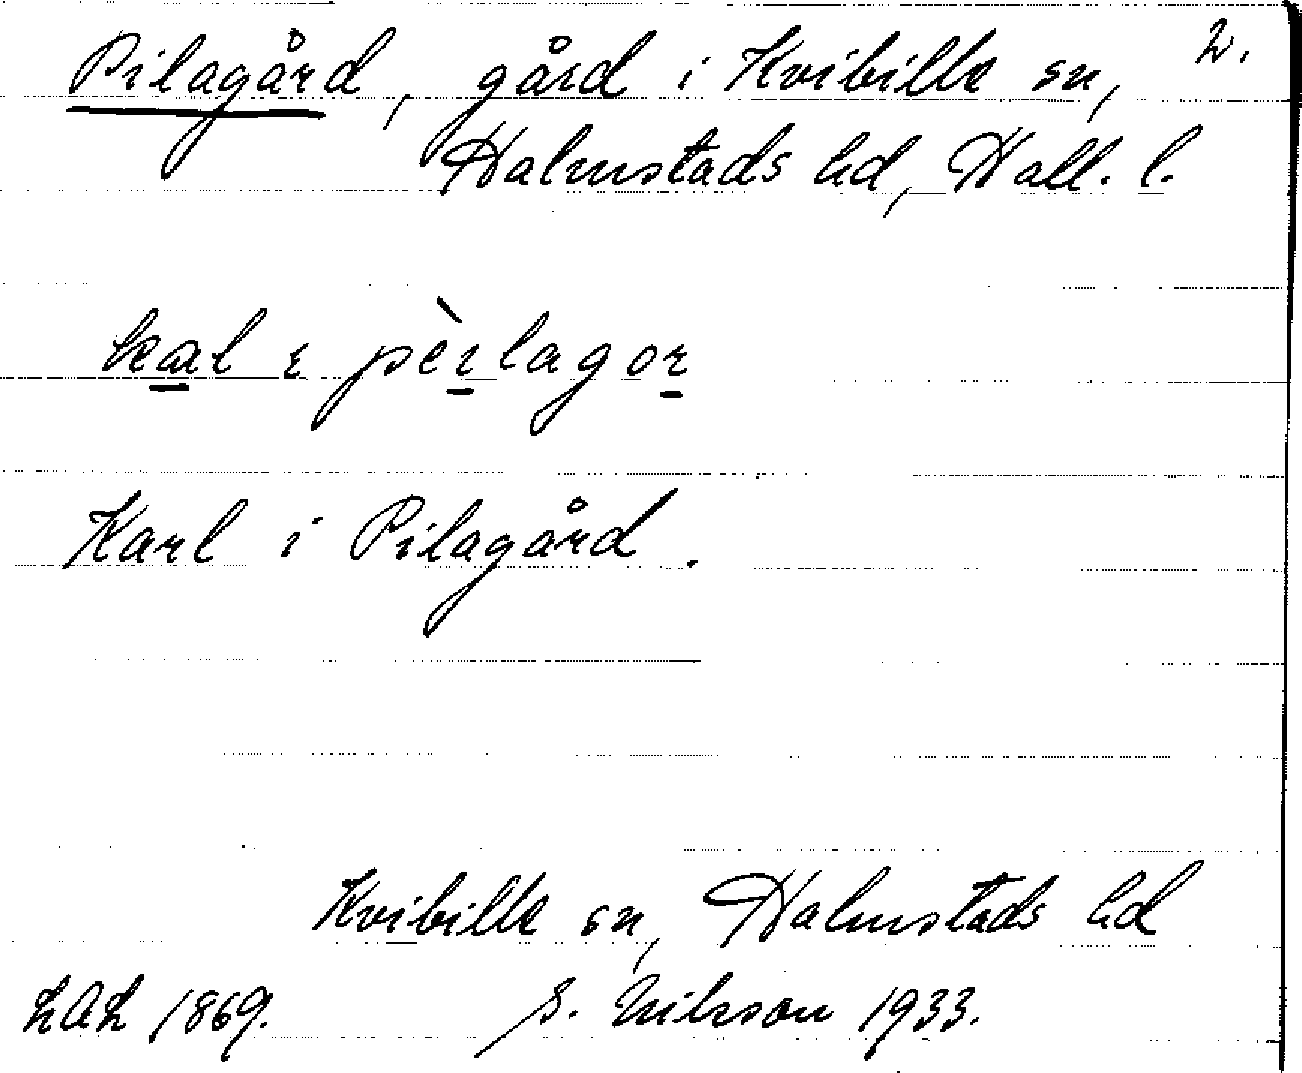 Pilagård, gård i Kvibille sn, 2.
Halmstads hd, Hall. l.
kal i pèrlagor
Karl i Pilagård.
Kvibille sn, Halmstads hd
1869. S. Nilsson 1933.